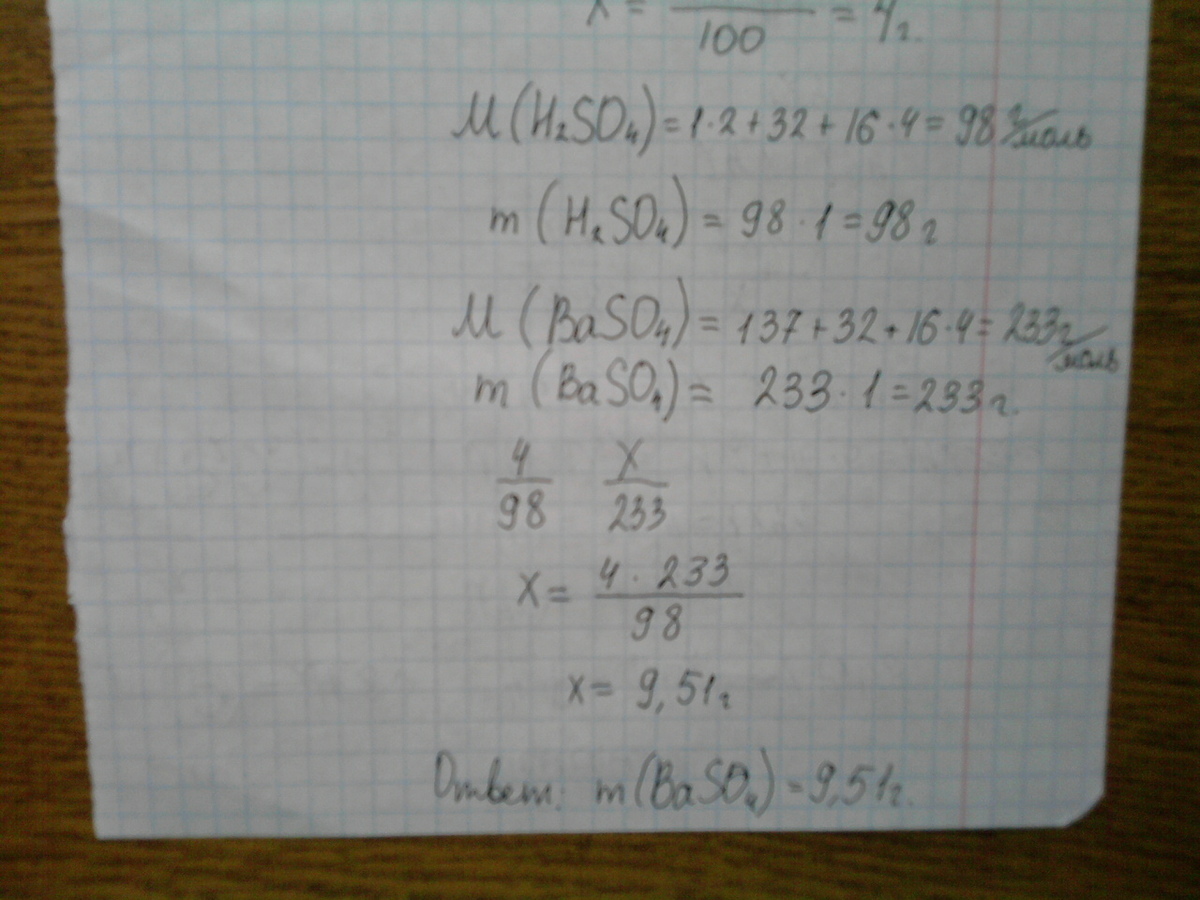 X = ―― = 4г.
100
M(H₂SO₄) = 1·2+32+16·4 = 98 г/моль
m(H₂SO₄) = 98·1 = 98 г
M(BaSO₄) = 137+32+16·4 = 233г/моль
m(BaSO₄) = 233·1 = 233 г.
4 X
98 233
X = 4·233
98
x = 9,51г
Ответ: m(BaSO₄) = 9,51г.